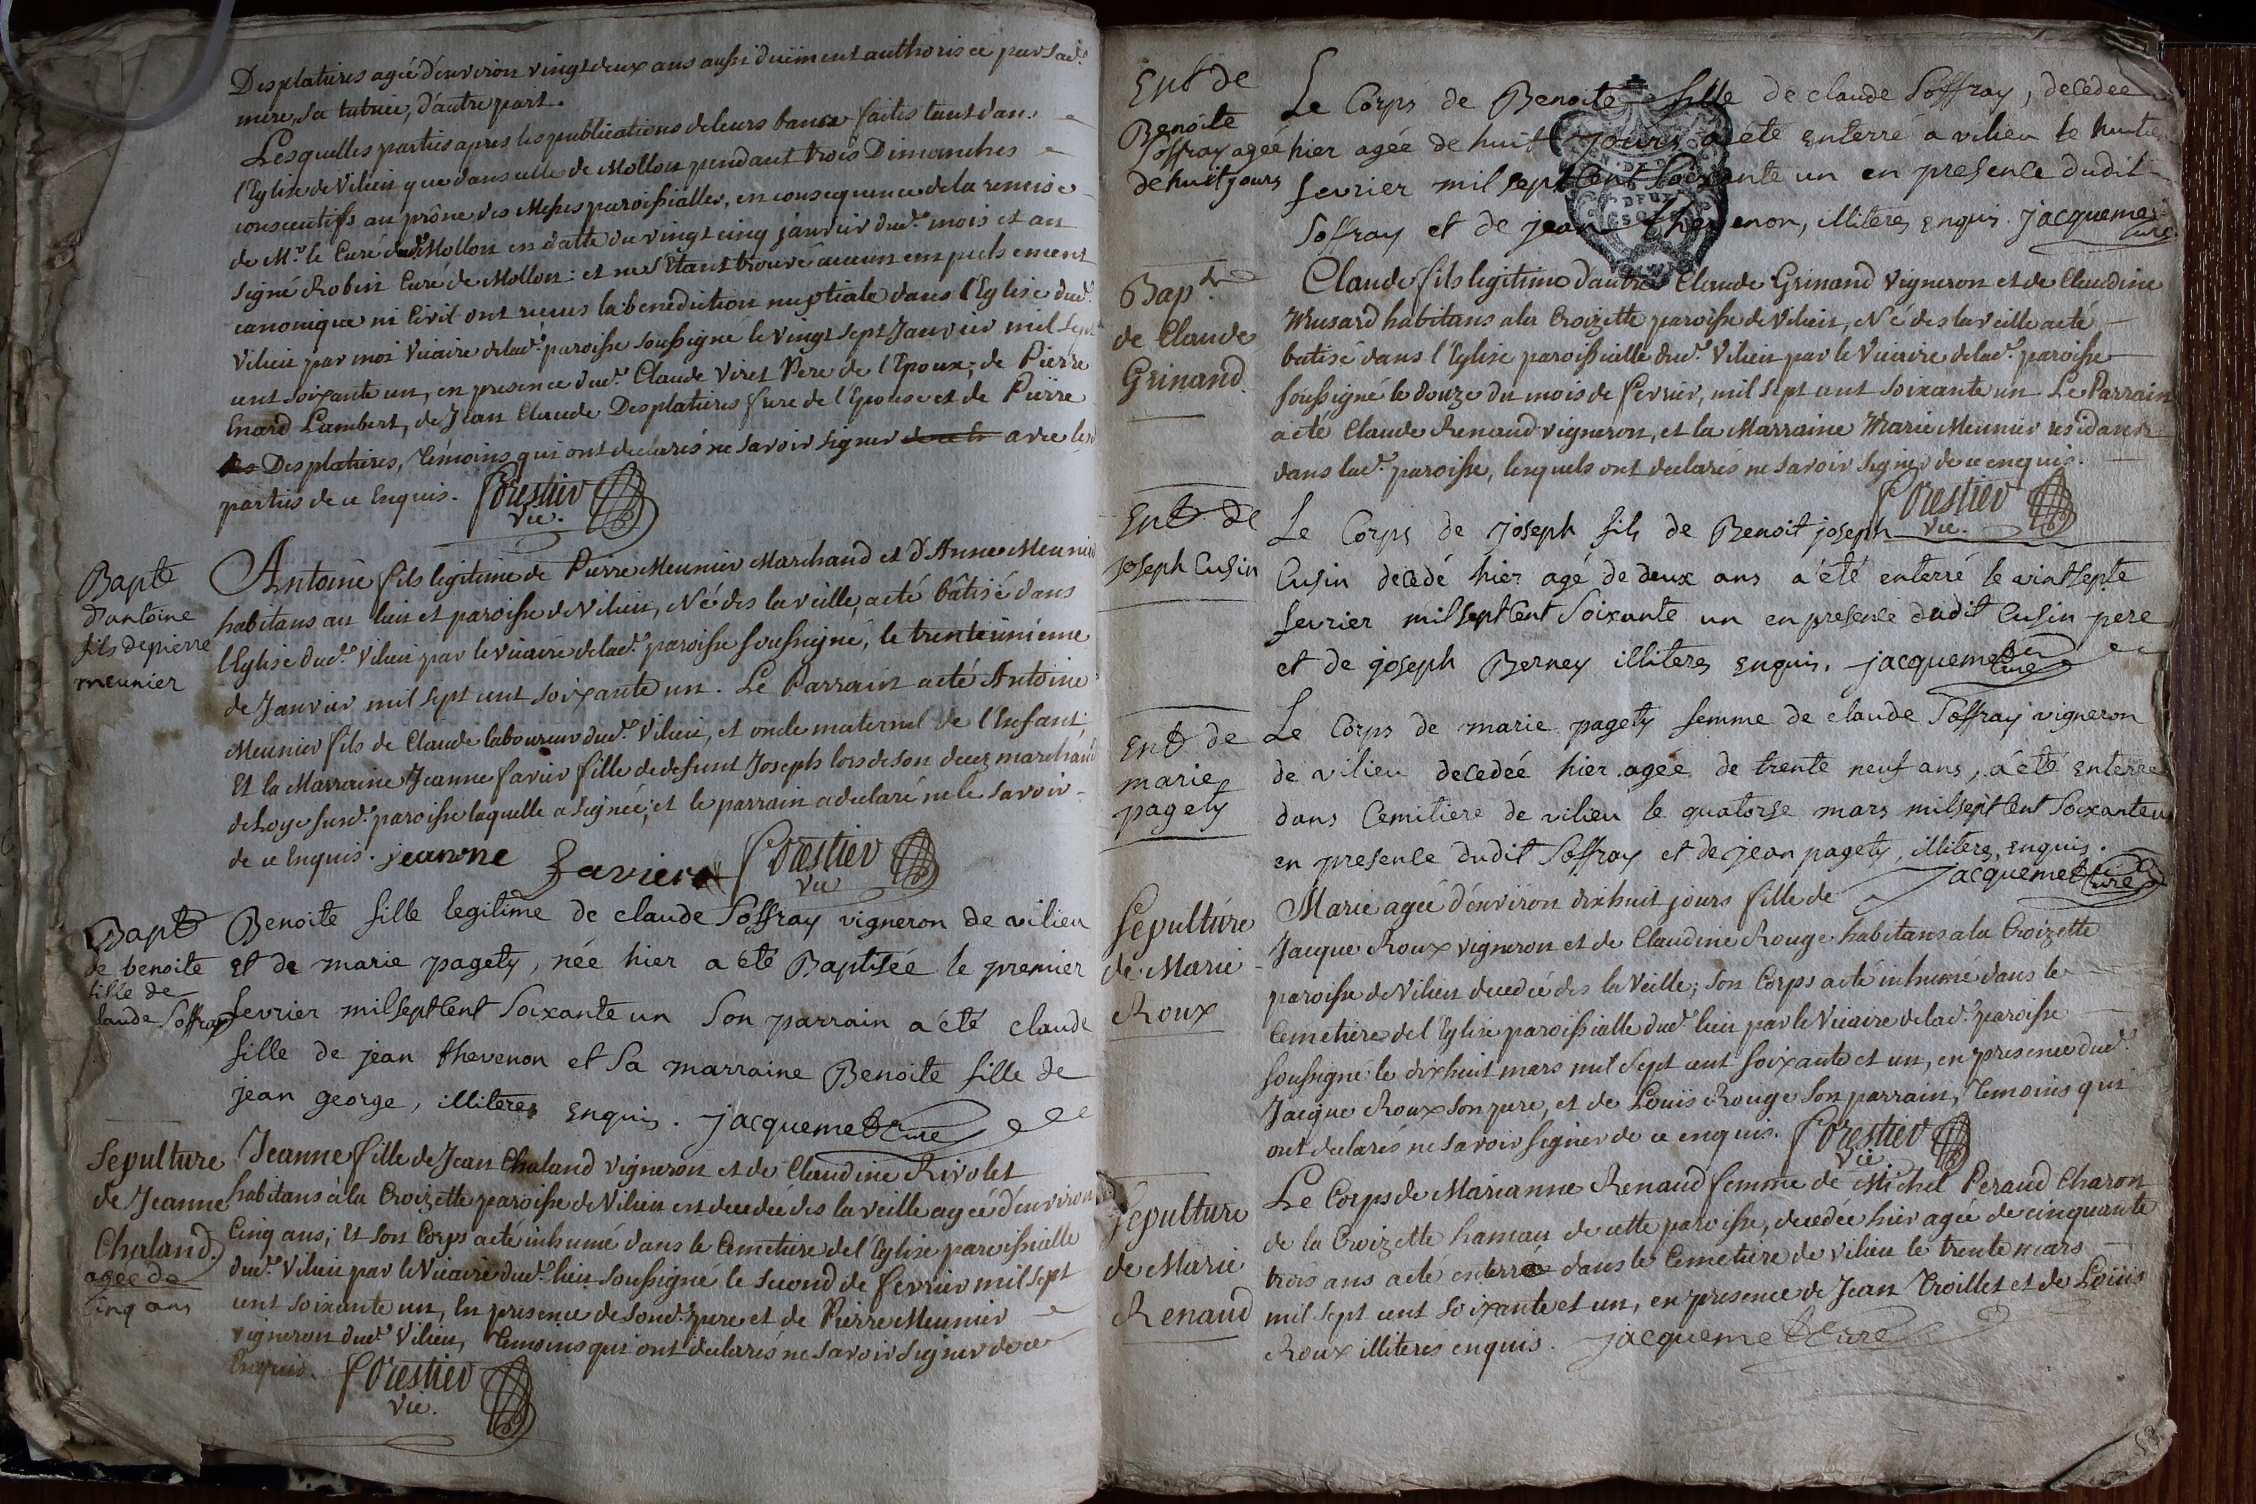 Desplatures agée d'environ vingt deux ans aussi duëment authorisée par sad.
mere, sa tutrice, d'autre part.
Lesquelles parties apres les publications de leurs bancs faites tant dans
l'Eglise de Vilieu que dans celle de Mollon pendant trois Dimanches
consecutifs au prône des Messes paroissialles, en consequence de la remise
de Mr. le Curé dud. Mollon en datte du vingt cinq janvier dud. mois et an
signé Robin Curé de Mollon: et ne s'Etant trouvé aucun empechement
canonique ni Civil ont recus la benediction nuptiale dans l'Eglise dud.
Vilieu par moi Vicaire de lad. paroisse soussigné le vingt sept Janvier mil sept
cent soixante un, en presence dud. Claude Viret Pere de l'Epoux, de Pierre
Enard Lambert, de Jean Claude Desplatures frere de l'Epouse et de Pierre
Desplatures, Témoins qui ont declarés ne savoir signer avec les
parties de ce Enquis. Forestier
Vic.
Bapte
d'antoine
fils de pierre
meunier
Antoine fils legitime de Pierre Meunier Marchand et d'Anne Meunier
habitans au lieu et paroisse de Vilieu, Né dès la veille, a eté bâtisé dans
l'Eglise dud. Vilieu par le vicaire de lad. paroisse soussigné, le trente unieme
de Janvier mil sept cent soixante un. Le Parrain a eté Antoine
Meunier fils de Claude laboureur dud. Vilieu, et oncle maternel de l'Enfant;
Et la Marraine Jeanne Favier fille de defunt Joseph lors de son decez marchand
de Loye susd. paroisse laquelle a signée; et le parrain a declaré ne le savoir
de ce Enquis. jeanne Favier Forestier
Vic
Bapt
de benoite
fille de
claude Soffray
Benoite fille legitime de claude Soffray vigneron de vilieu
et de marie pagety, née hier a été Baptisée le premier
fevrier mil sept cent soixante un son parrain a été claude
fille de jean thevenon et sa marraine Benoite fille de
jean george, illiteres enquis. jacquemet curé
Sepulture
de Jeanne
Chaland.
agée de
cinq ans
Jeanne fille de Jean Chaland vigneron et de Claudine Rivolet
habitans à la Croizette paroisse de Vilieu est decedée dès la veille agée d'environ
Cinq ans; et son Corps a eté inhumé dans le Cemetiere de l'Eglise paroissialle
dud. Vilieu par le Vicaire dud. lieu soussigné le second de fevrier mil sept
cent soixante un, En presence de sond. pere et de Pierre Meunier
vigneron dud. Vilieu, Temoins qui ont declarés ne savoir signer de ce
Enquis. Forestier
Vic.
Ent de
Benoite
Soffray agée
de huit jours
Le Corps de Benoite fille de claude Soffray, decedée
hier agée de huit jours a été enterré a vilieu le huitie
fevrier mil sept cent soixante un en presence dudit
Soffray et de jean thevenon, illiteres enquis. jacquemet
curé
Bapt.
de Claude
Grinand
Claude fils legitime d'autre Claude Grinand Vigneron et de Claudine
Musard habitans à la Croizette paroisse de Vilieu, Né dès la veille a eté
batisé dans l'Eglise paroissialle dud. Vilieu par le Vicaire de lad. paroisse
soussigné le douze du mois de fevrier, mil sept cent soixante un Le Parrain
a eté Claude Renaud vigneron, et la Marraine Marie Meunier residants
dans lad. paroisse, lesquels ont declarés ne savoir signer de ce enquis.
Forestier
Vic.
Ent de
joseph Cusin
Le Corps de joseph fils de Benoit joseph
Cusin decedé hier agé de deux ans a été enterré le vint septe
fevrier mil sept cent soixante un en presence dudit Cusin pere
et de joseph Berney illiteres enquis. jacquemet
curé
Ent de
marie
pagety
Le Corps de marie pagety femme de claude Soffray vigneron
de vilieu decedeé hier agée de trente neuf ans, a été enterré
dans Cemitiere de vilieu le quatorse mars mil sept cent soixante un
en presence dudit Soffray et de jean pagety, illiteres, enquis.
jacquemet curé
Sepulture
de Marie
Roux
Marie agée d'environ dixhuit jours fille de
Jacque Roux vigneron et de Claudine Rouge habitans à la Croizette
paroisse de Vilieu decedée dès la Veille; son Corps a eté inhumé dans le
Cemetiere de l'Eglise paroissialle dud. lieu par le Vicaire de lad. paroisse
soussigné le dixhuit mars mil sept cent soixante et un, en presence dud.
Jacque Roux son pere, et de Louis Rouge son parrain, Temoins qui
ont declarés ne savoir signer de ce enquis. Forestier
Vic
Sepulture
de Marie
Renaud
Le Corps de Marianne Renaud femme de Michel Peraud Charon
de la Croizette hameau de cette paroisse, decedée hier agée de cinquante
trois ans a eté enterré dans le Cemetiere de Vilieu le trente mars
mil sept cent soixante et un, en presence de Jean Troillet et de Loüis
Roux illiterés enquis. jacquemet Curé